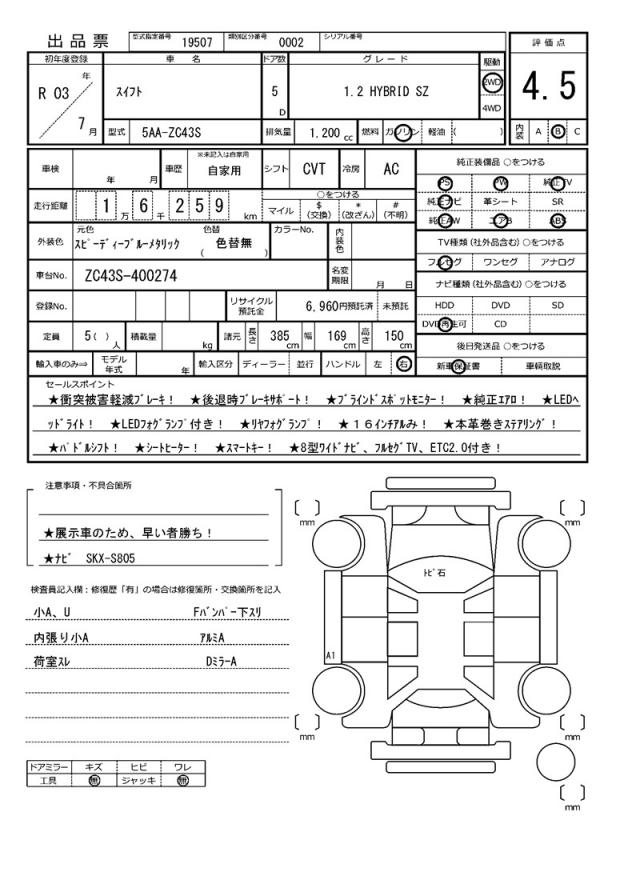 出品票 型式指定番号 19507 類別区分番号 0002 シリアル番号
評価点
4.5
内装 A B C
初年度登録 車名 ドア数 グレード 駆動
R 03 年 7 月 スイフト 5 D 1.2 HYBRID SZ 2WD 4WD
型式 5AA-ZC43S 排気量 1.200 cc 燃料 ガソリン 軽油 ( )
車検 年 月 車歴 ※未記入は自家用 自家用 シフト CVT 冷房 AC
走行距離 1 万 6 千 2 5 9 km ○をつける マイル $(交換) *(改ざん) #(不明)
外装色 元色 スピーディーブルーメタリック 色替 ( 色替無 ) カラーNo. 内装色
車台No. ZC43S-400274 名変期限 月 日
登録No. リサイクル預託金 6,960円預託済 未預託
定員 5( )人 積載量 kg 諸元 長さ 385 cm 幅 169 cm 高さ 150 cm
輸入車のみ⇒ モデル年式 年 輸入区分 ディーラー 並行 ハンドル 左 右
純正装備品 ○をつける
PS PW 純正TV
純正ナビ 革シート SR
純正AW エアB ABS
TV種類(社外品含む) ○をつける
フルセグ ワンセグ アナログ
ナビ種類(社外品含む) ○をつける
HDD DVD SD
DVD再生可 CD
後日発送品 ○をつける
新車保証書 車輌取説
セールスポイント
★衝突被害軽減ブレーキ! ★後退時ブレーキサポート! ★ブラインドスポットモニター! ★純正エアロ! ★LEDヘ
ッドライト! ★LEDフォグランプ付き! ★リヤフォグランプ! ★16インチアルミ! ★本革巻きステアリング!
★パドルシフト! ★シートヒーター! ★スマートキー! ★8型ワイドナビ、フルセグTV、ETC2.0付き!
注意事項・不具合箇所
★展示車のため、早い者勝ち!
★ナビ SKX-S805
検査員記入欄:修復歴「有」の場合は修復箇所・交換箇所を記入
小A、U Fバンパー下スリ
内張り小A アルミA
荷室スレ DミラーA
ドアミラー キズ ヒビ ワレ
工具 無 ジャッキ 無
[ ] mm
[ ] mm
トビ石
A1
[ ] mm
[ ] mm
[ ] mm